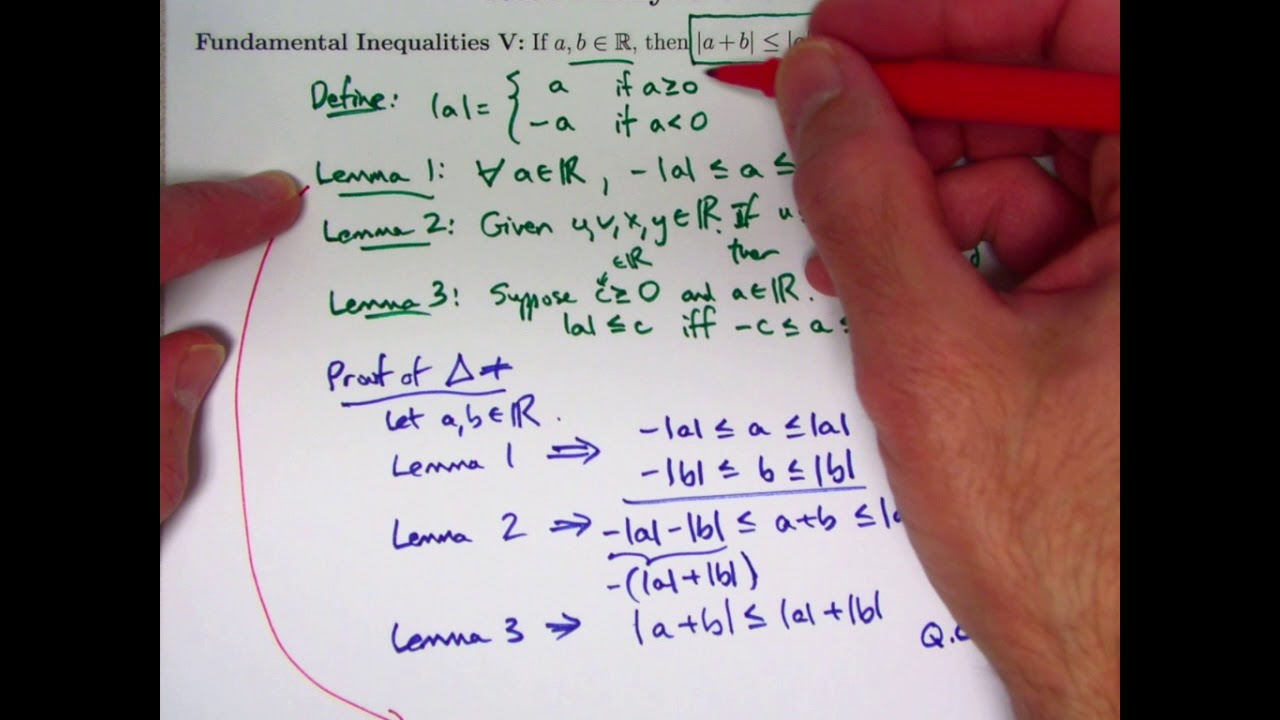 Fundamental Inequalities V: If a, b ∈ ℝ, then |a + b| ≤ |a
Define: |a| = { a if a ≥ 0
-a if a < 0
Lemma 1: ∀ a ∈ ℝ, -|a| ≤ a ≤
Lemma 2: Given u, v, x, y ∈ ℝ. If u
∈ℝ then
Lemma 3: Suppose c ≥ 0 and a ∈ ℝ.
|a| ≤ c iff -c ≤ a ≤
Proof of Δ ≠
Let a, b ∈ ℝ.
-|a| ≤ a ≤ |a|
Lemma 1 ⇒ -|b| ≤ b ≤ |b|
Lemma 2 ⇒ -|a| - |b| ≤ a+b ≤ |a
-(|a| + |b|)
Lemma 3 ⇒ |a + b| ≤ |a| + |b|
Q.